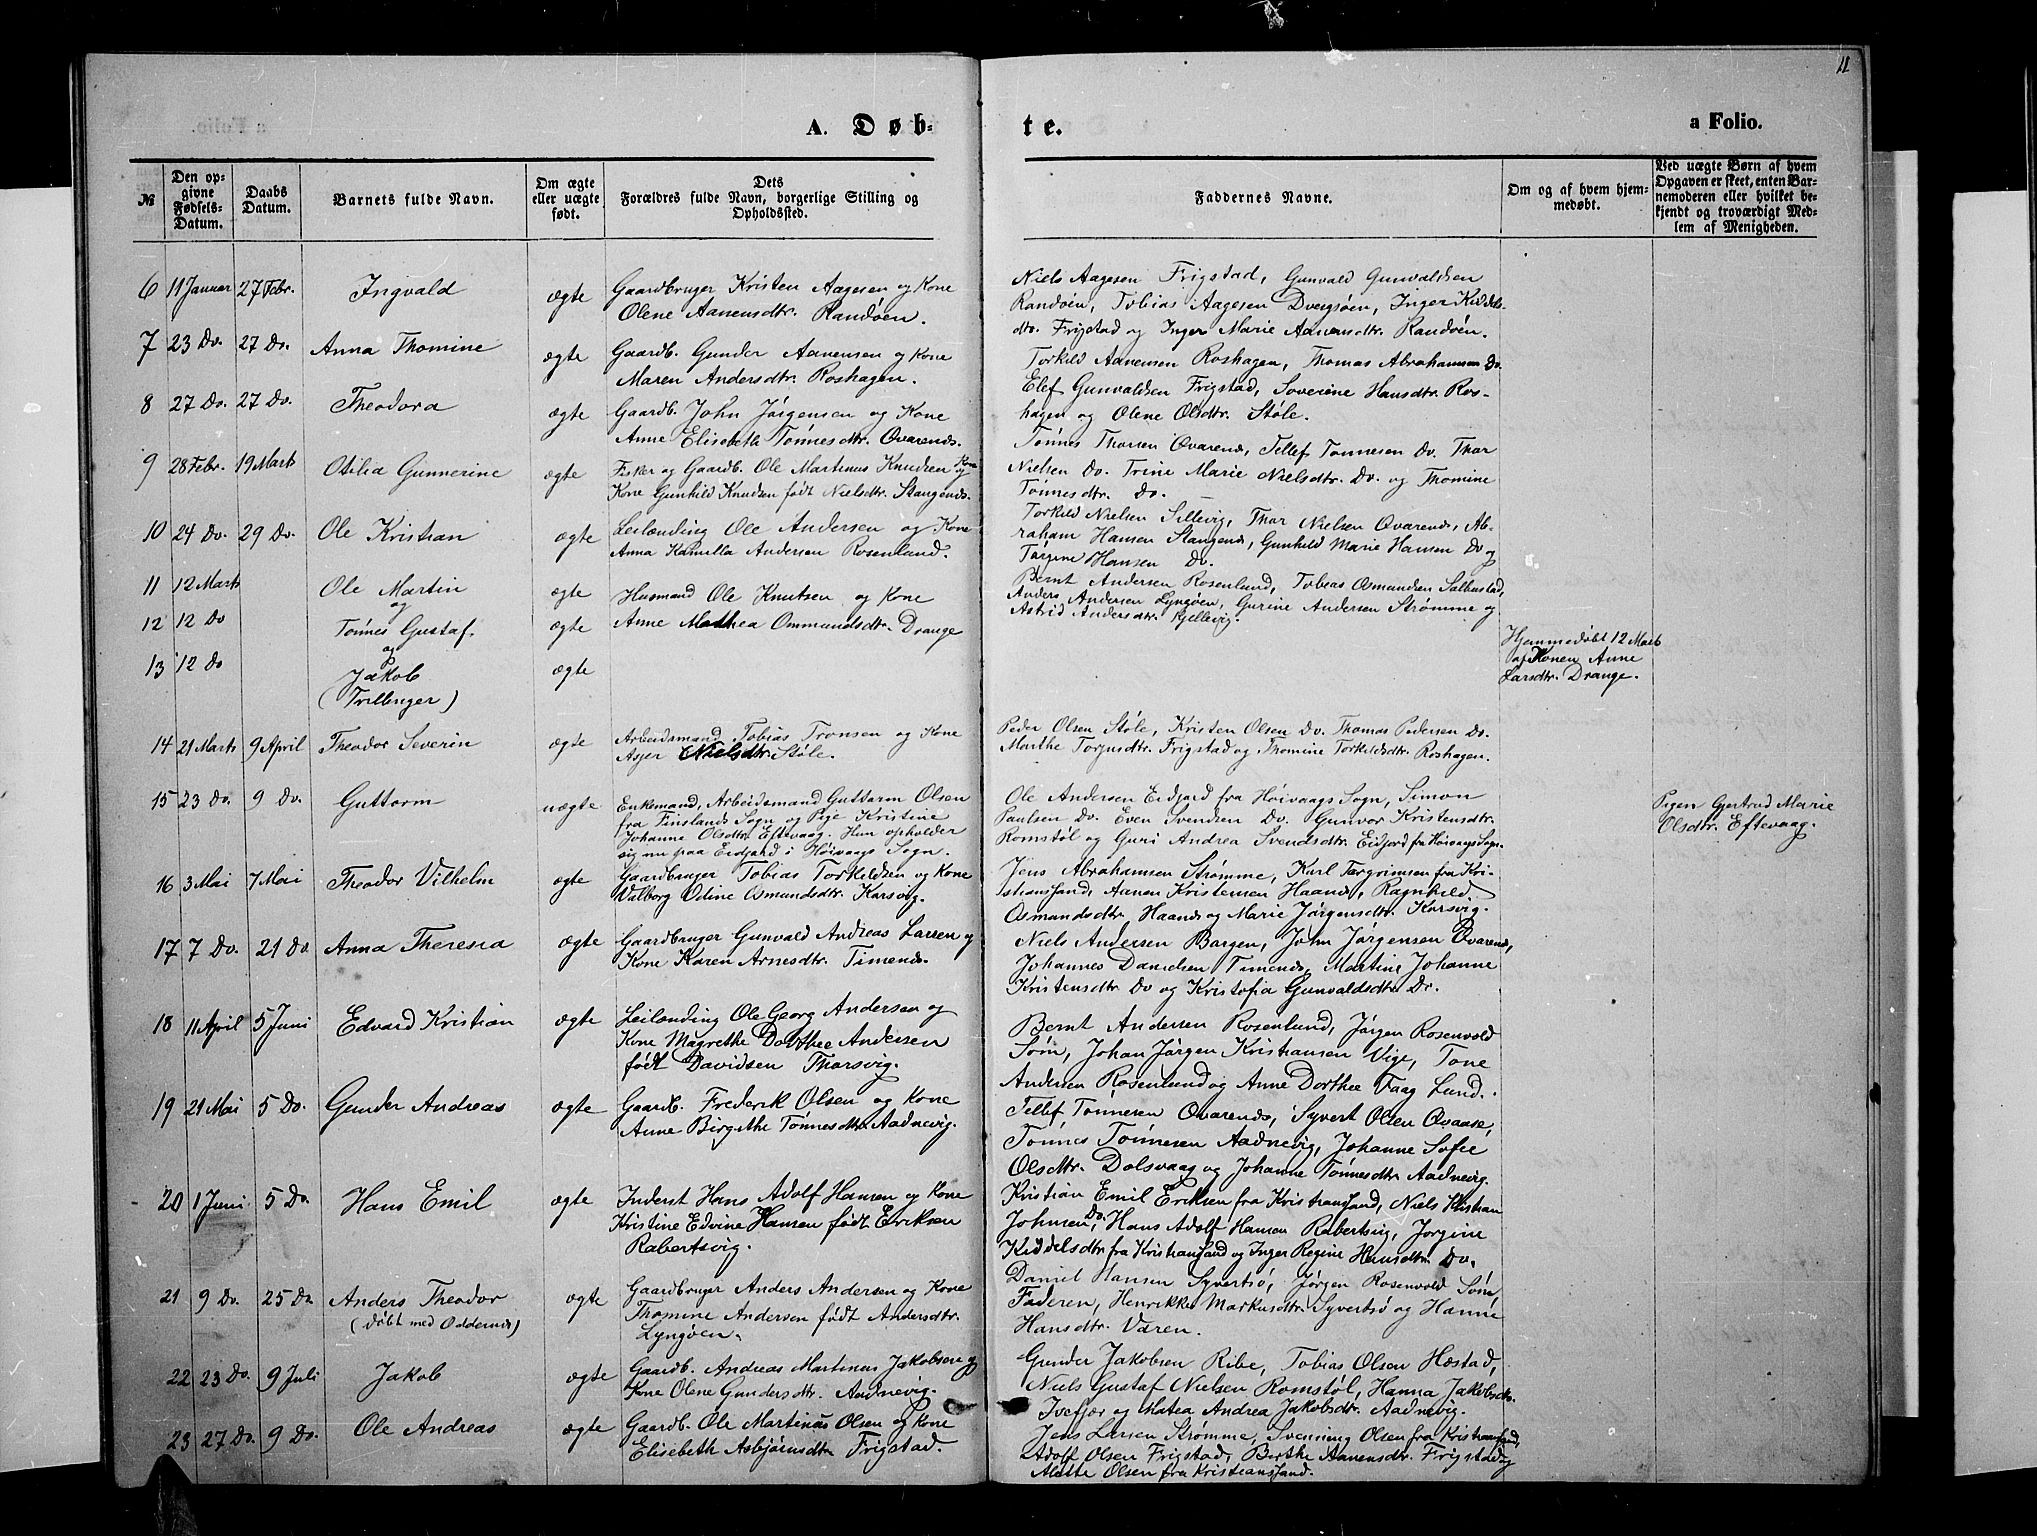 11
A. Døb-
te.
a Folio.
№
Den op-
givne
Fødsels-
Datum.
Daabs
Datum.
Barnets fulde Navn.
Om ægte
eller uægte
født.
Dets
Forældres fulde Navn, borgerlige Stilling og
Opholdssted.
Faddernes Navne.
Om og af hvem hjem-
medøbt.
Ved uægte Børn af hvem
Opgaven er skeet, enten Bar-
nemoderen eller hvilket be-
kjendt og troværdigt Med-
lem af Menigheden.
6 11 Januar 27 Febr. Ingvald ægte Gaardbruger Kristen Aagesen og Kone
Olene Aanensdtr. Randøen.
Niels Aagesen Frigstad, Gunvald Gunvaldsen
Randøen, Tobias Aagesen Dvergsøen, Inger Kiddels-
dtr. Frigstad og Inger Marie Aanensdtr. Randøen.
7 23 Do. 27 Do. Anna Thomine ægte Gaardb. Gunder Aanensen og Kone
Maren Andersdtr. Roshagen.
Torkild Aanensen Roshagen, Thomas Abrahamsen Do.
Elef Gunvaldsen Frigstad, Soverine Hansdtr. Ros-
hagen og Olene Olsdtr. Støle.
8 27 Do. 27 Do. Theodora ægte Gaardb. John Jørgensen og Kone
Anne Elisebeth Tønnesdtr. Qvarends.
Tønnes Thorsen Qvarends, Tellef Tønnesen Do. Thor
Nielsen Do. Trine Marie Nielsdtr. Do. og Thomine
Tønnesdtr. Do.
9 28 Febr. 19 Marts Otilia Gunnerine ægte Fisker og Gaardb. Ole Martinus Knudsen og
Kone Gunhild Knudsen født Nielsdtr. Stangends.
Torkild Nielsen Sillevig, Thor Nielsen Qvarends, Ab-
raham Hansen Stangends, Gunhild Marie Hansen Do og
Tørgine Hansen Do.
10 24 Do. 29 Do. Ole Kristian ægte Leilænding Ole Andersen og Kone
Anna Kamilla Andersen Rosenlund.
Bernt Andersen Rosenlund, Tobias Osmundsen Salbustad,
Anders Andersen Lyngøen, Gurine Andersen Strømme og
Astrid Andersdtr. Kjellevig.
11 12 Marts Ole Martin ægte Husmand Ole Knutsen og Kone
og
Anne Mathea Ommundsdtr. Drange
12 12 Do Tønnes Gustaf. ægte
og
13 12 Do Jakob ægte
(Trillinger)
Hjemmedøbt 12 Marts
af Konen Anne
Larsdtr. Drange.
14 21 Marts 9 April Theodor Severin ægte Arbeidsmand Tobias Tronsen og Kone
Asjer Nielsdtr. Støle.
Peder Olsen Støle, Kristen Olsen Do. Thomas Pedersen Do.
Marthe Torjusdtr. Frigstad og Thomine Torkildsdtr. Roshagen.
15 23 Do. 9 Do. Guttorm uægte Enkemand, Arbeidsmand Guttorm Olsen
fra Finslands Sogn og Pige Kristine
Johanne Olsdtr. Eftevaag. Hun opholder
sig nu paa Eidjord i Høivaags Sogn.
Ole Andersen Eidjord fra Høivaags Sogn, Simon
Paulsen Do. Even Svendsen Do. Gunvor Kristensdtr.
Romstøl og Guri Andrea Svendsdtr. Eidjord fra Høivaags Sogn.
Pigen Gjertrud Marie
Olsdtr. Eftevaag.
16 3 Mai 7 Mai Theodor Vilhelm ægte Gaardbruger Tobias Torkildsen og Kone
Valborg Oline Osmundsdtr. Korsvig.
Jens Abrahamsen Strømme, Karl Targrimsen fra Kri-
stiansand, Aanen Kristensen Haands, Ragnhild
Osmundsdtr. Haands og Marie Jørgensdtr. Korsvig.
17 7 Do. 21 Do Anna Theresia ægte Gaardbruger Gunvald Andreas Larsen og
Kone Karen Arnesdtr. Timends.
Niels Andersen Bargen, John Jørgensen Qvarends,
Johannes Danielsen Timends, Martine Johanne
Kristensdtr. Do og Kristofia Gunvaldsdtr. Do.
18 11 April 5 Juni Edvard Kristian ægte Leilænding Ole Georg Andersen og
Kone Magrethe Dorthee Andersen
født Davidsen Thorsvig.
Bernt Andersen Rosenlund, Jørgen Rosenvold
Søm, Johan Jørgen Kristiansen Vige, Tone
Andersen Rosenlund og Anne Dorthee Faag Lund.
19 21 Mai 5 Do. Gunder Andreas ægte Gaardb. Frederik Olsen og Kone
Anne Birgithe Tønnesdtr. Aadnevig.
Tellef Tønnesen Qvarends, Syvert Olsen Qvaase,
Tønnes Tønnesen Aadnevig, Johanne Sofie
Olsdtr. Dolsvaag og Johanne Tønnesdtr. Aadnevig.
20 1 Juni 5 Do. Hans Emil ægte Inderst Hans Adolf Hansen og Kone
Kristine Edvine Hansen født Eriksen
Rabertsvig.
Kristian Emil Eriksen fra Kristiansand, Niels Kristian
Johnsen Do. Hans Adolf Hansen Rabertsvig, Jorgine
Kiddelsdtr. fra Kristiansand og Inger Regine Hansdtr. Do.
21 9 Do. 25 Do Anders Theodor ægte Gaardbruger Anders Andersen og Kone
(døbt med Oddernes)
Thomine Andersen født Andersdtr.
Lyngøen.
Daniel Hansen Syvertsø, Jørgen Rosenvold Søm,
Faderen, Henrikke Markusdtr. Syvertsø og Hanne
Hansdtr. Varen.
22 23 Do. 9 Juli Jakob ægte Gaardb. Andreas Martinus Jakobsen og
Kone Olene Gundersdtr. Aadnevig.
Gunder Jakobsen Ribe, Tobias Olsen Hæstad,
Niels Gustaf Nielsen Romstøl, Hanna Jakobsdtr.
Ivefjær og Matea Andrea Jakobsdtr. Aadnevig.
23 27 Do. 9 Do. Ole Andreas ægte Gaardb. Ole Martinus Olsen og Kone
Elisebeth Asbjørnsdtr. Frigstad.
Jens Larsen Strømme, Svenning Olsen fra Kristiansand,
Adolf Olsen Frigstad, Berthe Aanensdtr. Frigstad og
Mette Olsen fra Kristiansand.